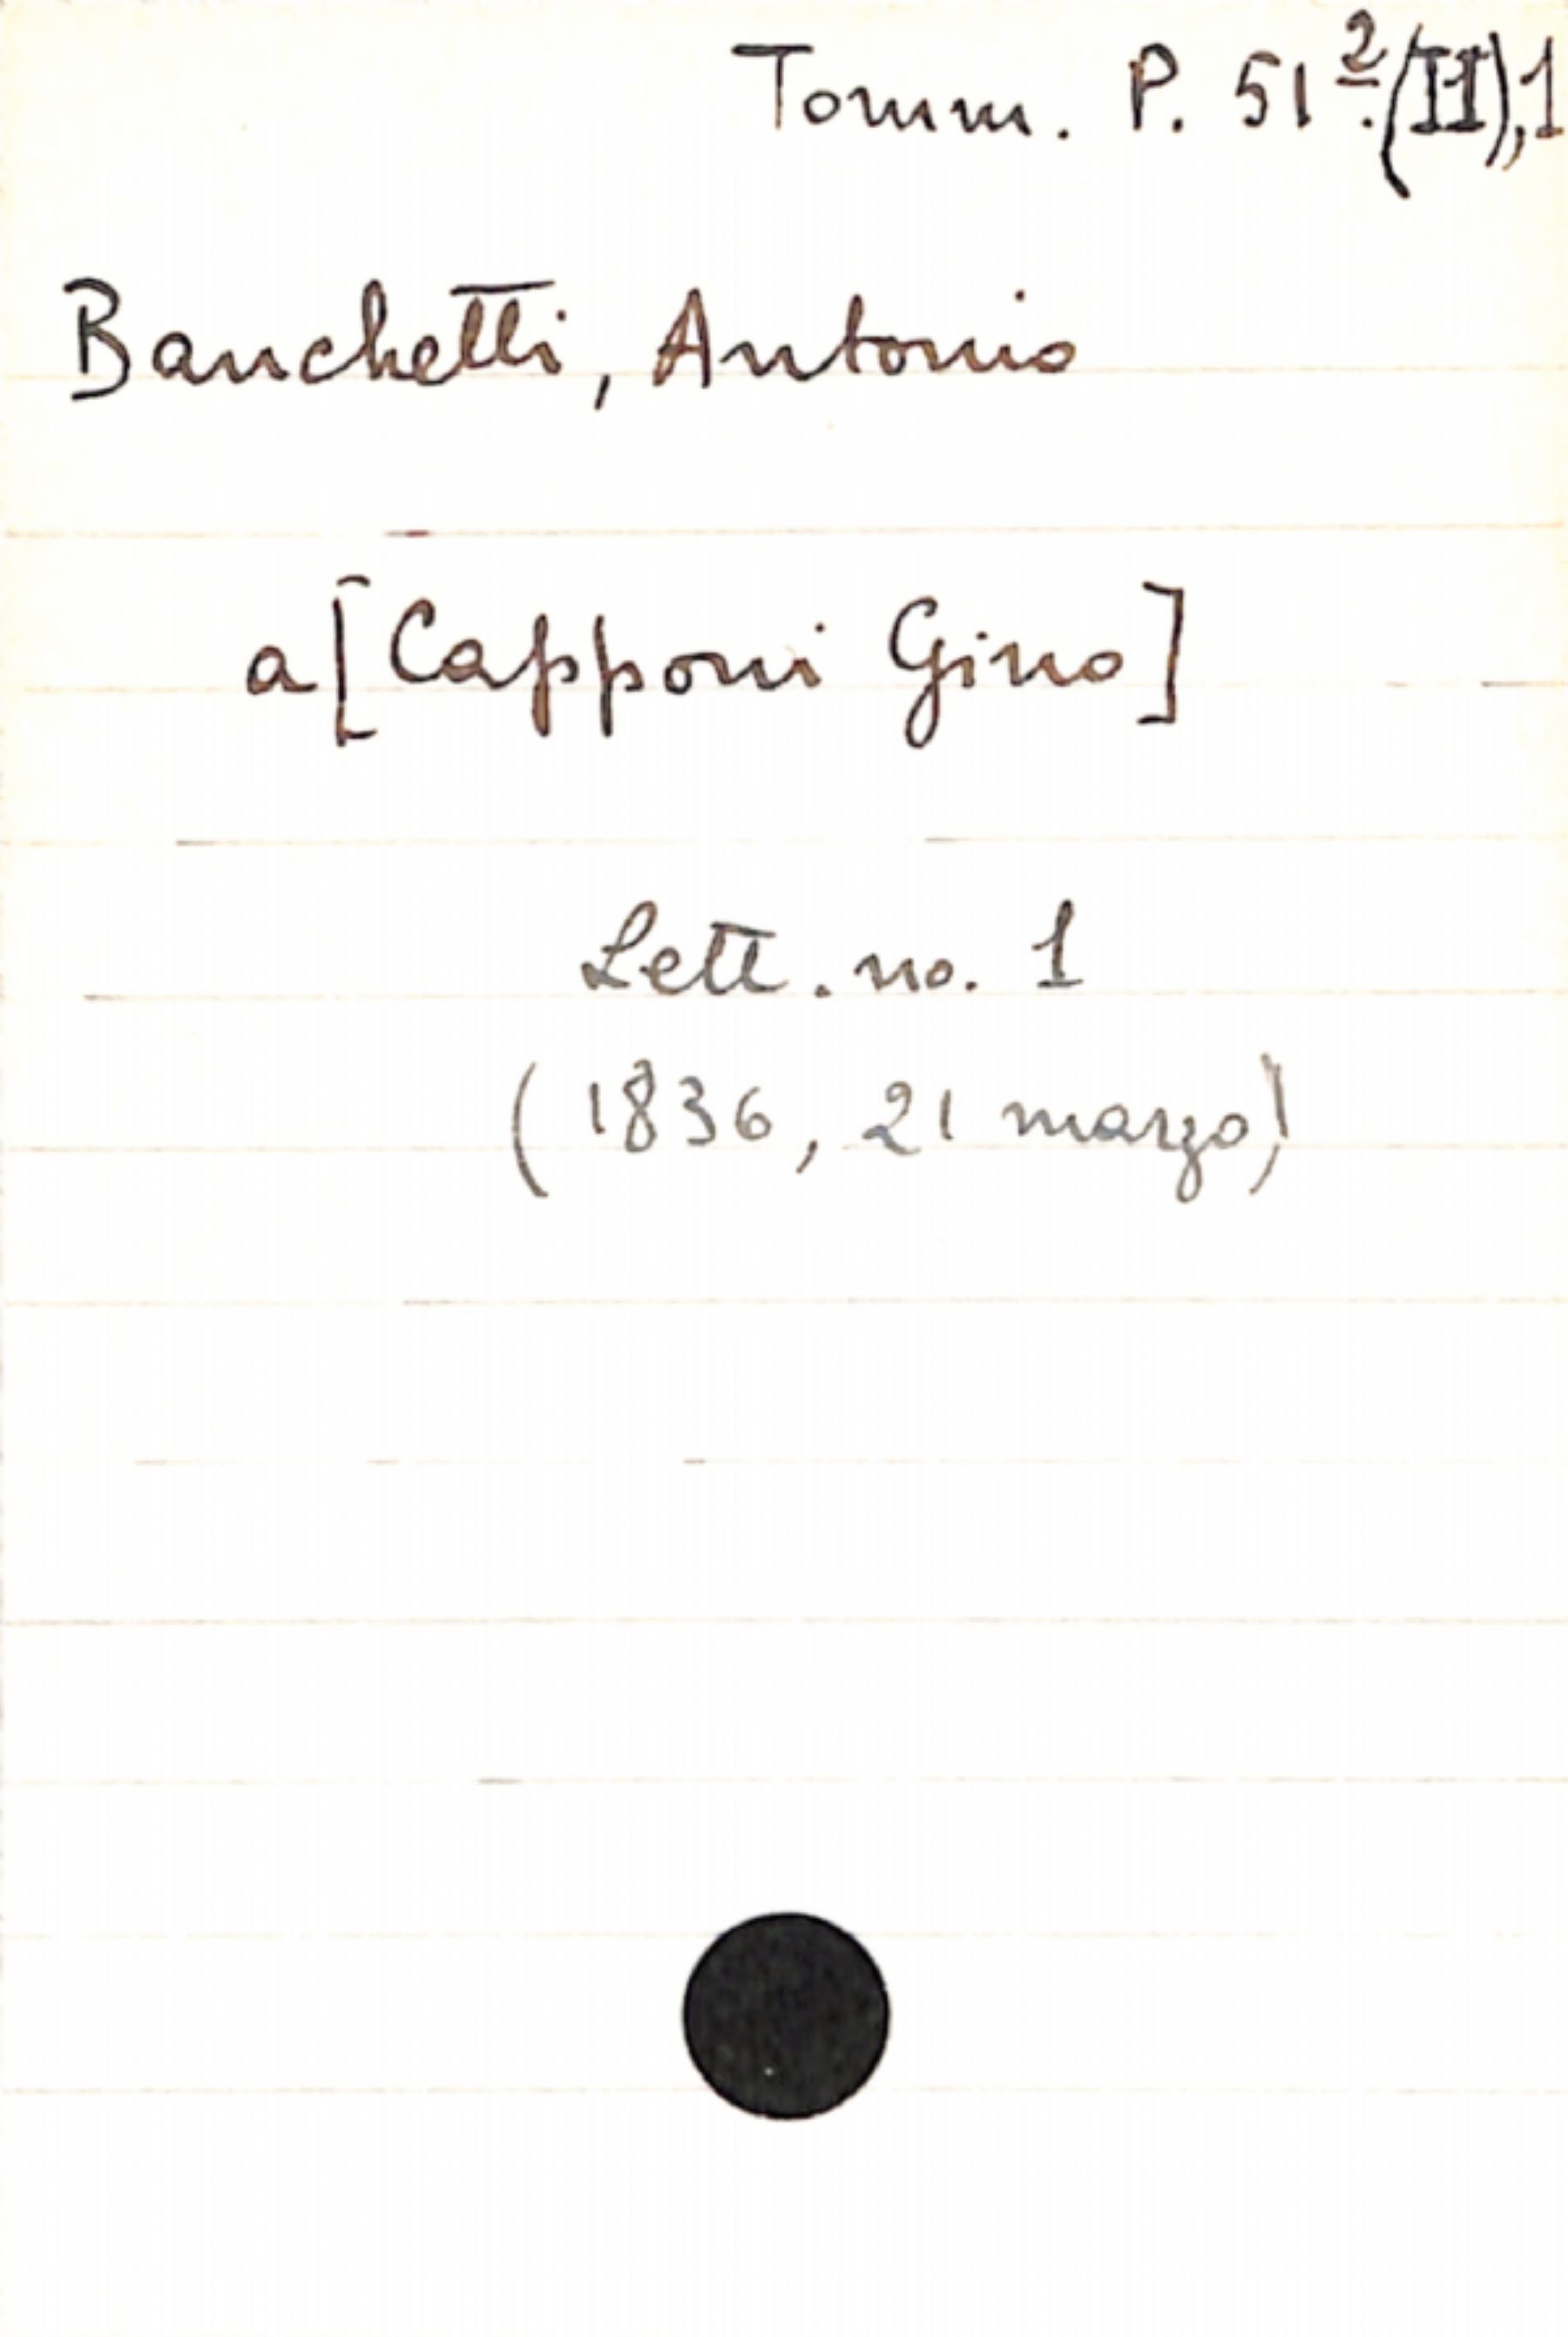 Tomm. P. 51².(II),1
Banchetti, Antonio
a [Capponi Gino]
Lett. no. 1
(1836, 21 marzo)